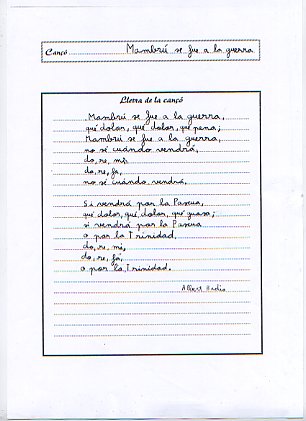 Cançó Mambrú se fue a la guerra
Lletra de la cançó
Mambrú se fue a la guerra,
qué dolor, qué dolor, qué pena;
Mambrú se fue a la guerra,
no sé cuándo vendrá,
do, re, mi,
do, re, fa,
no sé cuándo vendrá.
Si vendrá por la Pascua,
qué dolor, qué dolor, qué guasa;
si vendrá por la Pascua
o por la Trinidad,
do, re, mi,
do, re, fa,
o por la Trinidad.
Albert